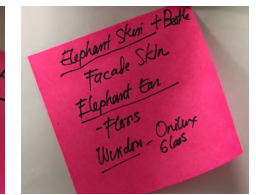 Elephant Skin + Beetle
Facade Skin
Elephant Ear
- Floors
Window - Onilux
Glass